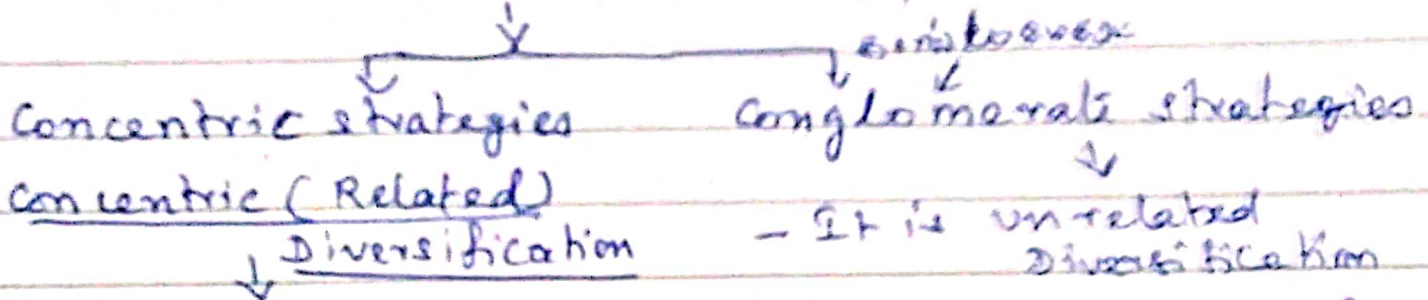 Concentric strategies Conglomerate strategies
Concentric (Related)
Diversification
- It is unrelated
Diversification